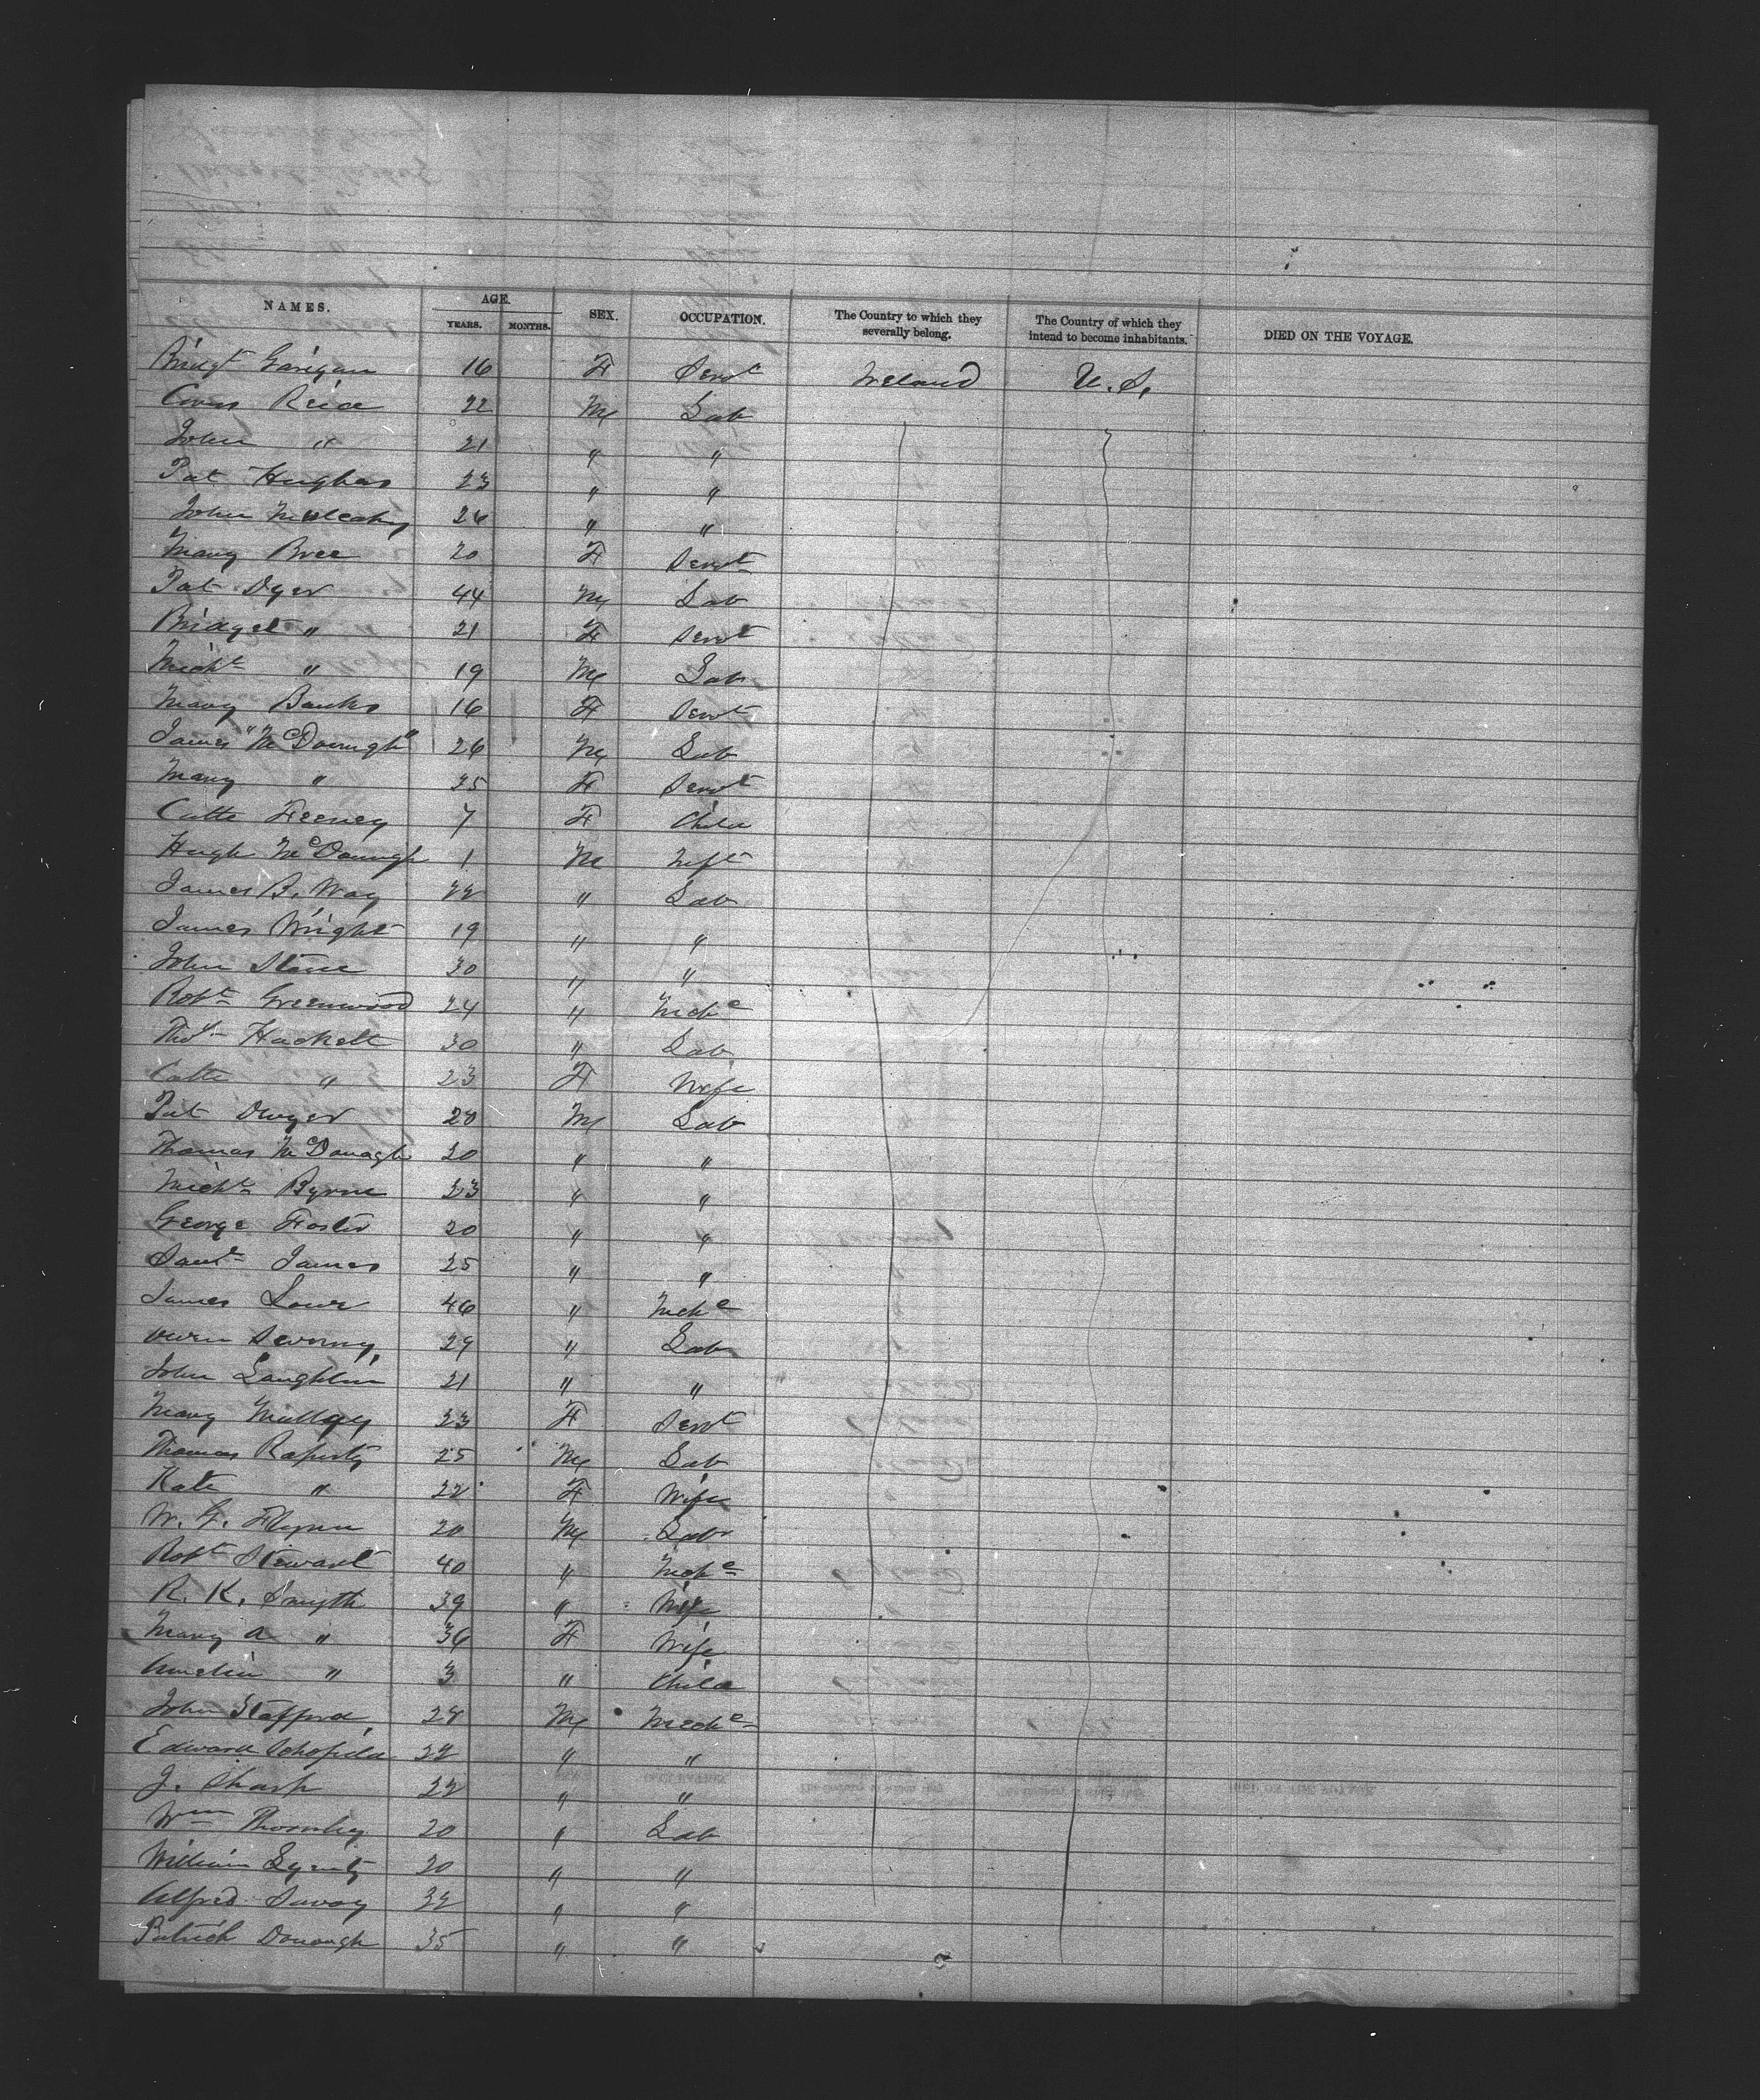 NAMES. AGE. SEX. OCCUPATION. The Country to which they severally belong. The Country of which they intend to become inhabitants. DIED ON THE VOYAGE.
YEARS. MONTHS.
Bridgt Garigan 16 F Servt Ireland U.S.
Reid 22 M Lab
John " 21 " "
Pat Hughes 23 " "
John Mulcahy 26 " "
Mary Bree 20 F Servt
Pat Dyer 44 M Lab
Bridget " 21 F Servt
Michl " 19 M Lab
Mary Banks 16 F Servt
James "McDonugh" 26 M Lab
Mary " 35 F Servt
Catte Feeney 7 F Child
Hugh McDonugh 1 M Inft
James B. Way 22 " Lab
James Wright 19 " "
John Stone 30 " "
Robt Greenwood 24 " Mechc
Thos Hackett 30 " Lab
Catte " 23 F Wife
Pat Dwyer 20 M Lab
Thomas McDonagh 20 " "
Michl Byrne 23 " "
George Foster 20 " "
Saml James 25 " "
James Lowe 46 " Mechc
Owen 29 " Lab
John Laughlin 21 " "
Mary Mullay 23 F Servt
Thomas Raferty 25 M Lab
Kate " 22 F Wife
W. G. Flynn 20 M Lab
Robt Stewart 40 " Mechc
R. K. Smyth 39 "
Mary A " 36 F Wife
Amelia " 3 " Child
John Stafford 28 M Mechc
Edward Schofield 22 " "
J. Sharp 22 " "
Wm Thornley 20 " Lab
William 20 " "
Alfred Savoy 32 " "
Patrick Donough 35 " "